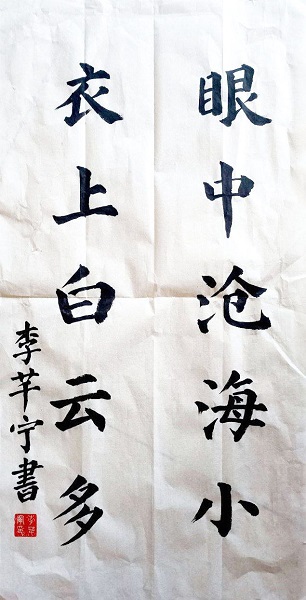 眼中沧海小
衣上白云多
李芊宁書